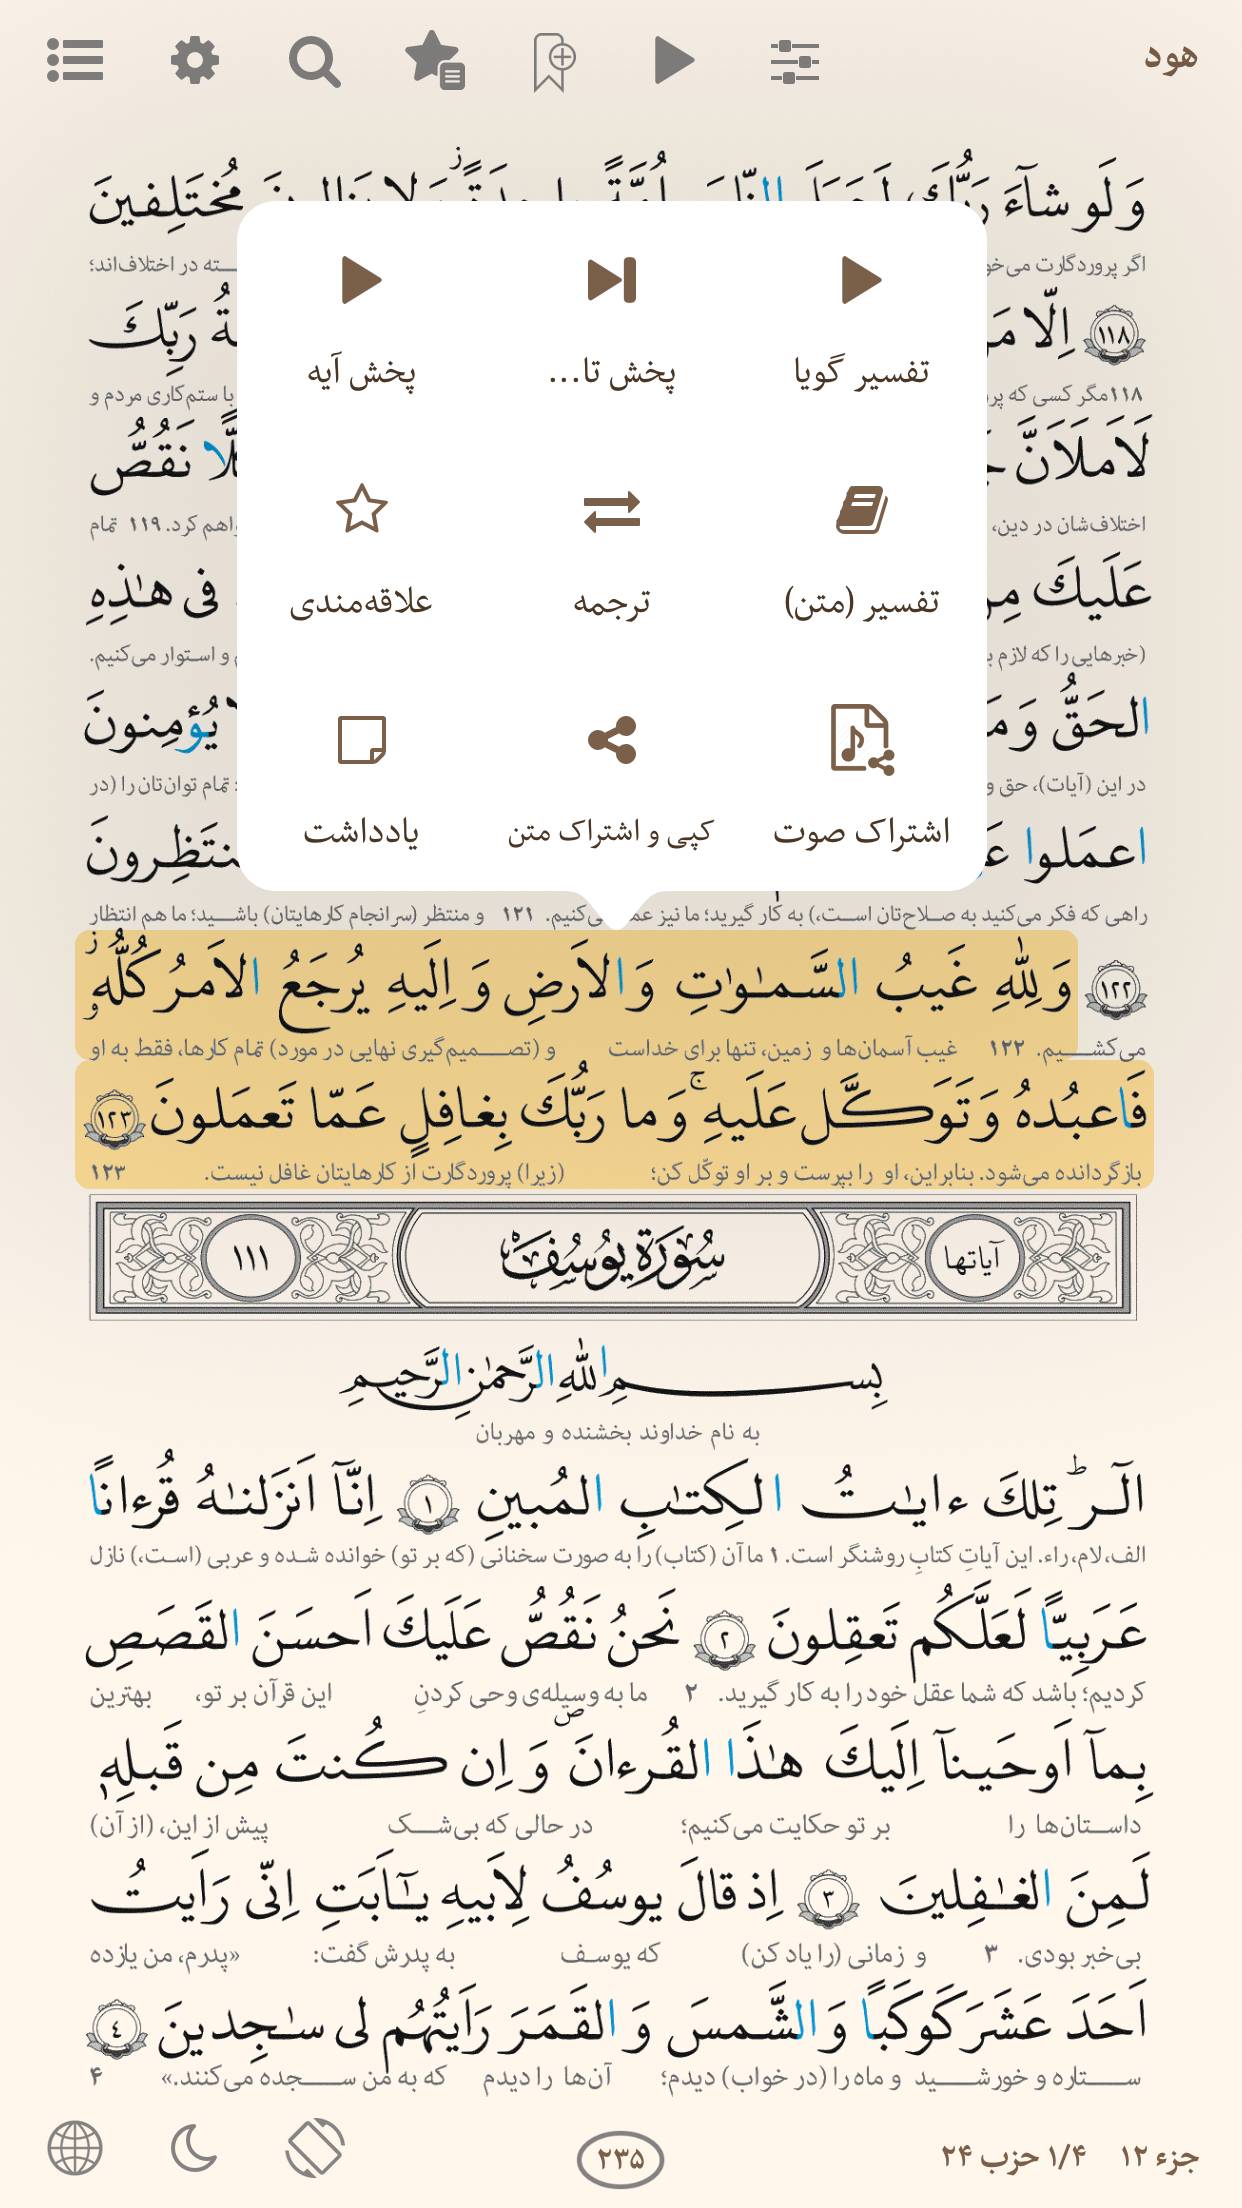 هود
وَلَو شآءَ رَبُّكَ لَجَعَلَ النّاسَ اُمَّةً واحِدَةً ۖ وَلا يَزالونَ مُختَلِفينَ
اگر پروردگارت می‌خو ته در اختلاف‌اند؛
تفسیر گویا پخش تا... پخش آیه
﴿١١٨﴾ اِلّا مَ رَبِّكَ
۱۱۸ مگر کسی که پر با ستم‌کاری مردم و
لَاَملَاَنَّ نَقُصُّ
اختلاف‌شان در دین، اهم کرد. ۱۱۹ تمام
تفسیر (متن) ترجمه علاقه‌مندی
عَلَيكَ مِن فى هٰذِهِ
(خبرهایی را که لازم ب و استوار می‌کنیم.
الحَقُّ وَ مَ يُؤمِنونَ
در این (آیات)، حق و تمام توان‌تان را (در
اشتراک صوت کپی و اشتراک متن یادداشت
اعمَلوا عَ نتَظِرونَ
راهی که فکر می‌کنید به صلاح‌تان است،) به کار گیرید؛ ما نیز عمل می‌کنیم. ۱۲۱ و منتظر (سرانجام کارهایتان) باشید؛ ما هم انتظار
﴿١٢٢﴾ وَ لِلّٰهِ غَيبُ السَّمٰوٰتِ وَ الاَرضِ وَ اِلَيهِ يُرجَعُ الاَمرُ كُلُّهٗ
می‌کشیم. ۱۲۲ غیب آسمان‌ها و زمین، تنها برای خداست و (تصمیم‌گیری نهایی در مورد) تمام کارها، فقط به او
فَاعبُدهُ وَ تَوَكَّل عَلَيهِ ۚ وَ ما رَبُّكَ بِغافِلٍ عَمّا تَعمَلونَ ﴿١٢٣﴾
بازگردانده می‌شود. بنابراین، او را بپرست و بر او توکّل کن؛ (زیرا) پروردگارت از کارهایتان غافل نیست. ۱۲۳
آیاتها سُورَةُ يُوسُفَ ١١١
بِسمِ اللّٰهِ الرَّحمٰنِ الرَّحيمِ
به نام خداوند بخشنده و مهربان
الٓر ۚ تِلكَ ءايٰتُ الكِتٰبِ المُبينِ ﴿١﴾ اِنّآ اَنزَلنٰهُ قُرءانًا
الف، لام، راء. این آیاتِ کتابِ روشنگر است. ۱ ما آن (کتاب) را به صورت سخنانی (که بر تو) خوانده شده و عربی (است،) نازل
عَرَبِيًّا لَعَلَّكُم تَعقِلونَ ﴿٢﴾ نَحنُ نَقُصُّ عَلَيكَ اَحسَنَ القَصَصِ
کردیم؛ باشد که شما عقل خود را به کار گیرید. ۲ ما به وسیله‌ی وحی کردنِ این قرآن بر تو، بهترین
بِمآ اَوحَينآ اِلَيكَ هٰذَا القُرءانَ وَ اِن كُنتَ مِن قَبلِهٖ
داستان‌ها را بر تو حکایت می‌کنیم؛ در حالی که بی‌شک پیش از این، (از آن)
لَمِنَ الغٰفِلينَ ﴿٣﴾ اِذ قالَ يوسُفُ لِاَبيهِ يٰٓاَبَتِ اِنّى رَاَيتُ
بی‌خبر بودی. ۳ و زمانی (را یاد کن) که یوسف به پدرش گفت: «پدرم، من یازده
اَحَدَ عَشَرَ كَوكَبًا وَ الشَّمسَ وَ القَمَرَ رَاَيتُهُم لى سٰجِدينَ ﴿٤﴾
ستاره و خورشید و ماه را (در خواب) دیدم؛ آن‌ها را دیدم که به من سجده می‌کنند.» ۴
جزء ۱۲ ۱/۴ حزب ۲۴ ۲۳۵